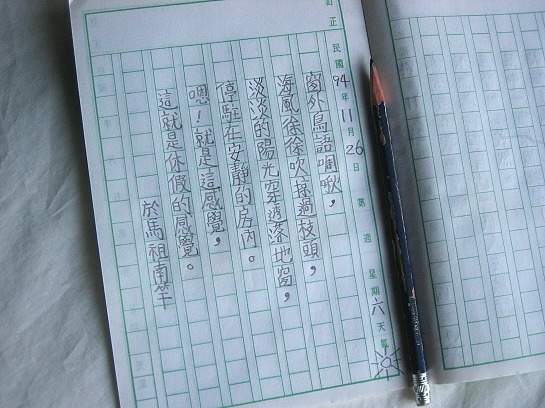 訂正
民國94年11月26日 第 週 星期六 天氣
窗外鳥語啁啾，
海風徐徐吹擦過枝頭，
淡淡的陽光穿透落地窗，
停駐在安靜的房內。
嗯！就是這感覺，
這就是休假的感覺。
於馬祖南竿